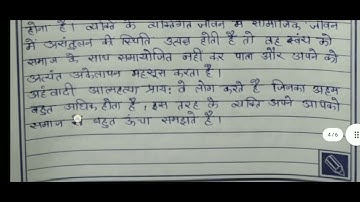 होता है। व्यक्ति के व्यक्तिगत जीवन में सामाजिक जीवन
में असंतुलन की स्थिति उत्पन्न होती है तो वह स्वयं को
समाज के साथ समायोजित नहीं कर पाता और अपने को
अत्यंत अकेलापन महसूस करता है।
अहंवादी आत्महत्या प्राय: वे लोग करते हैं जिनका अहम
बहुत अधिक होता है, इस तरह के व्यक्ति अपने आपको
समाज से बहुत ऊंचा समझते हैं।
4/6